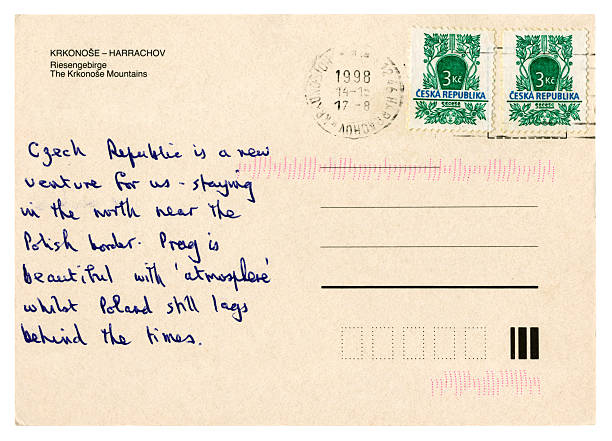 KRKONOŠE – HARRACHOV
Riesengebirge
The Krkonoše Mountains
1998
14-15
17-8
HARRACHOV
3 Kč
ČESKA REPUBLIKA
3 Kč
ČESKA REPUBLIKA
Czech Republic is a new
venture for us - staying
in the north near the
Polish border. Prag is
beautiful with 'atmosphere'
whilst Poland still lags
behind the times.